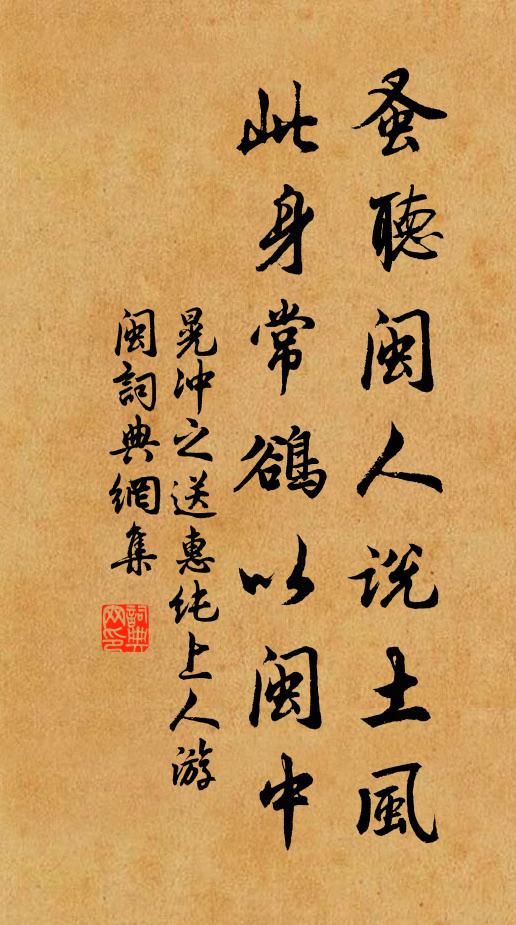 蚤聽閩人説土風
此身常鵒以閩中
晁冲之送惠純上人游
閩詞典網集
詞典
网印